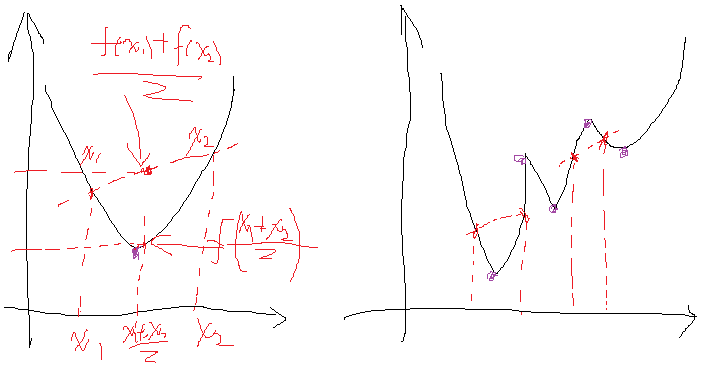 f(x₁)+f(x₂)
2
x₁
x₂
f(x₁+x₂
2)
x₁
x₁+x₂
2
x₂